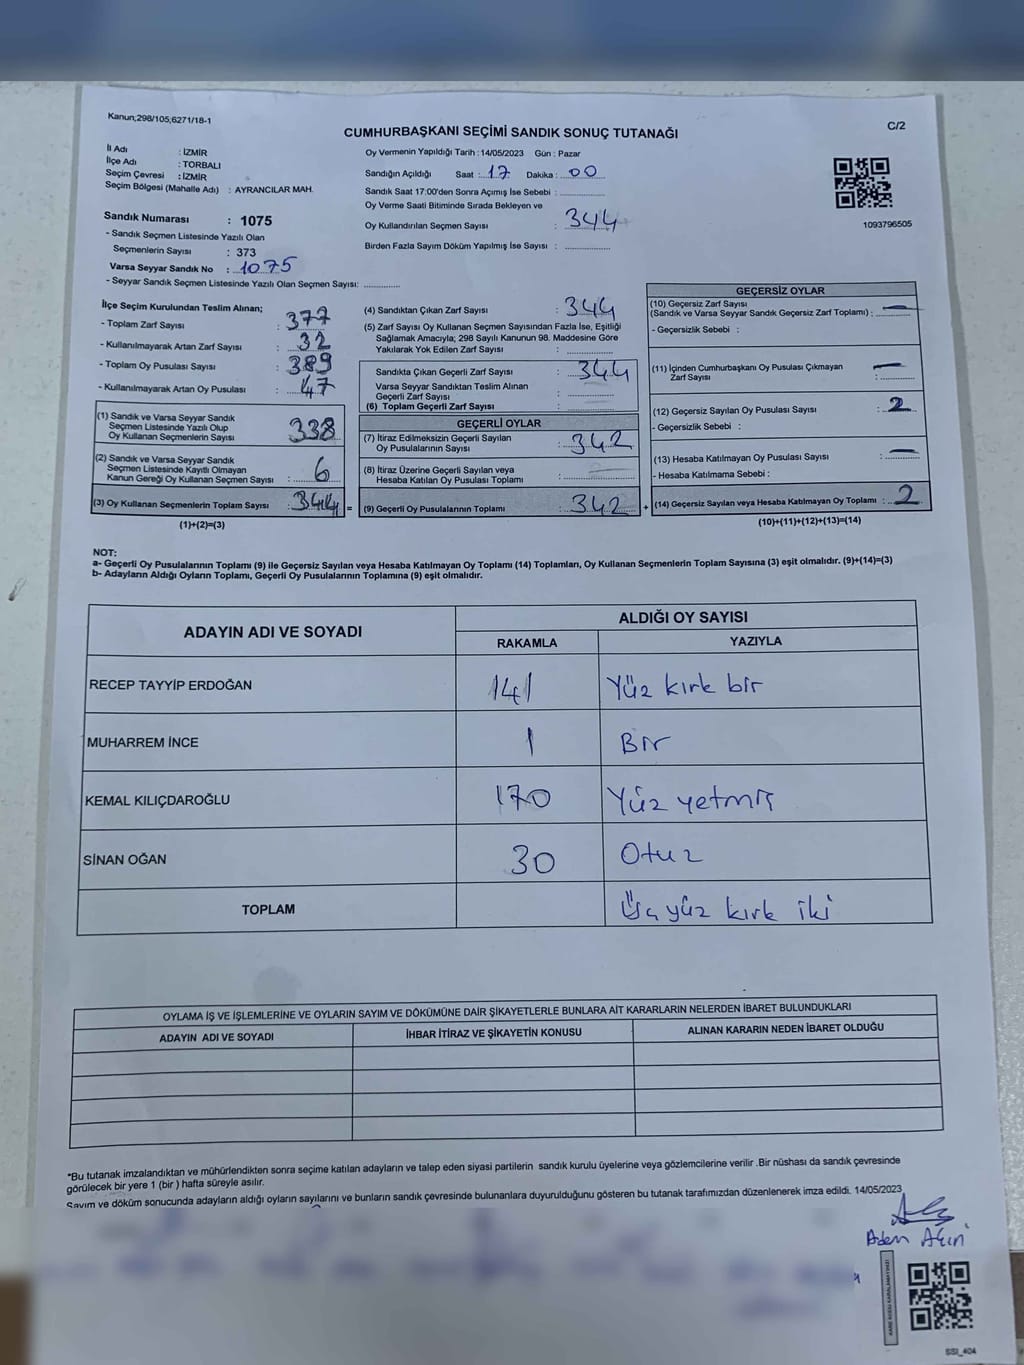 Kanun;298/105;6271/18-1
CUMHURBAŞKANI SEÇİMİ SANDIK SONUÇ TUTANAĞI
C/2
İl Adı : İZMİR
İlçe Adı : TORBALI
Seçim Çevresi : İZMİR
Seçim Bölgesi (Mahalle Adı) : AYRANCILAR MAH.
Sandık Numarası : 1075
- Sandık Seçmen Listesinde Yazılı Olan
Seçmenlerin Sayısı : 373
Varsa Seyyar Sandık No : 1075
- Seyyar Sandık Seçmen Listesinde Yazılı Olan Seçmen Sayısı: ............
Oy Vermenin Yapıldığı Tarih : 14/05/2023 Gün : Pazar
Sandığın Açıldığı Saat : 17 Dakika : 00
Sandık Saat 17:00'den Sonra Açımış İse Sebebi : ..............
Oy Verme Saati Bitiminde Sırada Bekleyen ve
Oy Kullandırılan Seçmen Sayısı : 344
Birden Fazla Sayım Döküm Yapılmış İse Sayısı : ..............
1093796505
İlçe Seçim Kurulundan Teslim Alınan;
- Toplam Zarf Sayısı : 377
- Kullanılmayarak Artan Zarf Sayısı : 32
- Toplam Oy Pusulası Sayısı : 389
- Kullanılmayarak Artan Oy Pusulası : 47
(1) Sandık ve Varsa Seyyar Sandık
Seçmen Listesinde Yazılı Olup
Oy Kullanan Seçmenlerin Sayısı 338
(2) Sandık ve Varsa Seyyar Sandık
Seçmen Listesinde Kayıtlı Olmayan
Kanun Gereği Oy Kullanan Seçmen Sayısı : 6
(3) Oy Kullanan Seçmenlerin Toplam Sayısı : 344 =
(1)+(2)=(3)
(4) Sandıktan Çıkan Zarf Sayısı : 344
(5) Zarf Sayısı Oy Kullanan Seçmen Sayısından Fazla İse, Eşitliği
Sağlamak Amacıyla; 298 Sayılı Kanunun 98. Maddesine Göre
Yakılarak Yok Edilen Zarf Sayısı : ..............
Sandıkta Çıkan Geçerli Zarf Sayısı : 344
Varsa Seyyar Sandıktan Teslim Alınan
Geçerli Zarf Sayısı : ..............
(6) Toplam Geçerli Zarf Sayısı : ..............
GEÇERLİ OYLAR
(7) İtiraz Edilmeksizin Geçerli Sayılan
Oy Pusulalarının Sayısı : 342
(8) İtiraz Üzerine Geçerli Sayılan veya
Hesaba Katılan Oy Pusulası Toplamı : ..............
(9) Geçerli Oy Pusulalarının Toplamı : 342 +
GEÇERSİZ OYLAR
(10) Geçersiz Zarf Sayısı
(Sandık ve Varsa Seyyar Sandık Geçersiz Zarf Toplamı) : —
- Geçersizlik Sebebi :
(11) İçinden Cumhurbaşkanı Oy Pusulası Çıkmayan
Zarf Sayısı : —
(12) Geçersiz Sayılan Oy Pusulası Sayısı : 2
- Geçersizlik Sebebi :
(13) Hesaba Katılmayan Oy Pusulası Sayısı : —
- Hesaba Katılmama Sebebi :
(14) Geçersiz Sayılan veya Hesaba Katılmayan Oy Toplamı : 2
(10)+(11)+(12)+(13)=(14)
NOT:
a- Geçerli Oy Pusulalarının Toplamı (9) ile Geçersiz Sayılan veya Hesaba Katılmayan Oy Toplamı (14) Toplamları, Oy Kullanan Seçmenlerin Toplam Sayısına (3) eşit olmalıdır. (9)+(14)=(3)
b- Adayların Aldığı Oyların Toplamı, Geçerli Oy Pusulalarının Toplamına (9) eşit olmalıdır.
ADAYIN ADI VE SOYADI ALDIĞI OY SAYISI
RAKAMLA YAZIYLA
RECEP TAYYİP ERDOĞAN 141 Yüz kırk bir
MUHARREM İNCE 1 Bir
KEMAL KILIÇDAROĞLU 170 Yüz yetmiş
SİNAN OĞAN 30 Otuz
TOPLAM Üç yüz kırk iki
OYLAMA İŞ VE İŞLEMLERİNE VE OYLARIN SAYIM VE DÖKÜMÜNE DAİR ŞİKAYETLERLE BUNLARA AİT KARARLARIN NELERDEN İBARET BULUNDUKLARI
ADAYIN ADI VE SOYADI İHBAR İTİRAZ VE ŞİKAYETİN KONUSU ALINAN KARARIN NEDEN İBARET OLDUĞU
*Bu tutanak imzalandıktan ve mühürlendikten sonra seçime katılan adayların ve talep eden siyasi partilerin sandık kurulu üyelerine veya gözlemcilerine verilir .Bir nüshası da sandık çevresinde
görülecek bir yere 1 (bir ) hafta süreyle asılır.
Sayım ve döküm sonucunda adayların aldığı oyların sayılarını ve bunların sandık çevresinde bulunanlara duyurulduğunu gösteren bu tutanak tarafımızdan düzenlenerek imza edildi. 14/05/2023
Adem
SSI_404